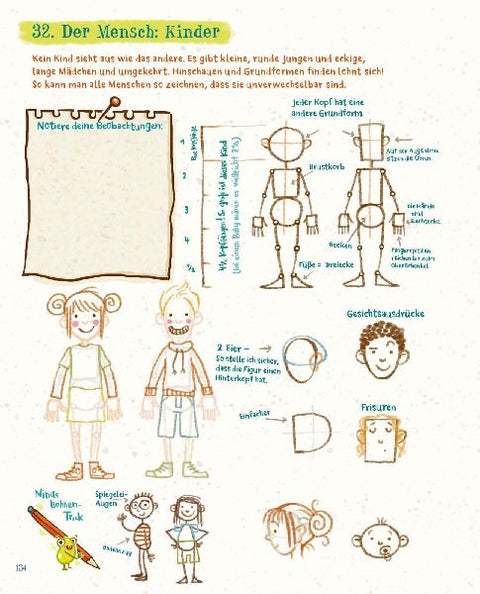 32. Der Mensch: Kinder
Kein Kind sieht aus wie das andere. Es gibt kleine, runde Jungen und eckige,
lange Mädchen und umgekehrt. Hinschauen und Grundformen finden lohnt sich!
So kann man alle Menschen so zeichnen, dass sie unverwechselbar sind.
Notiere deine Beobachtungen:
Jeder Kopf hat eine
andere Grundform
2
3
4
4½
4½ Kopflängen! So groß ist dieses Kind
Auf der Augenlinie
sitzen die Ohren.
Brustkorb
Die Hände
sind
Becken
Füße = Dreiecke
Fingerspitzen
reichen bis zum
Oberschenkel
2 Eier –
So stelle ich sicher,
dass die Figur einen
Hinterkopf hat.
Gesichtsausdrücke
Einfacher
Frisuren
Ninas
Bohnen-
Trick
Spiegelei-
Augen
134